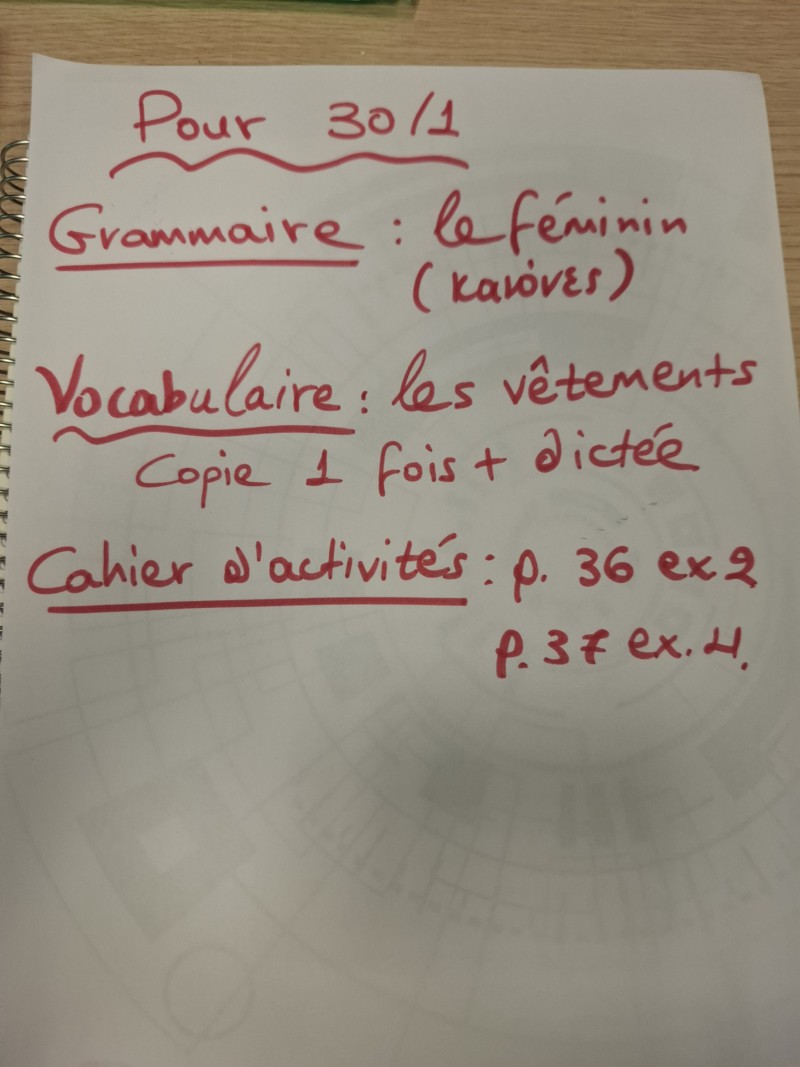 Pour 30/1
Grammaire : le féminin
(κανόνες)
Vocabulaire : les vêtements
Copie 1 fois + dictée
Cahier d'activités : p. 36 ex 2
p. 37 ex. 4.